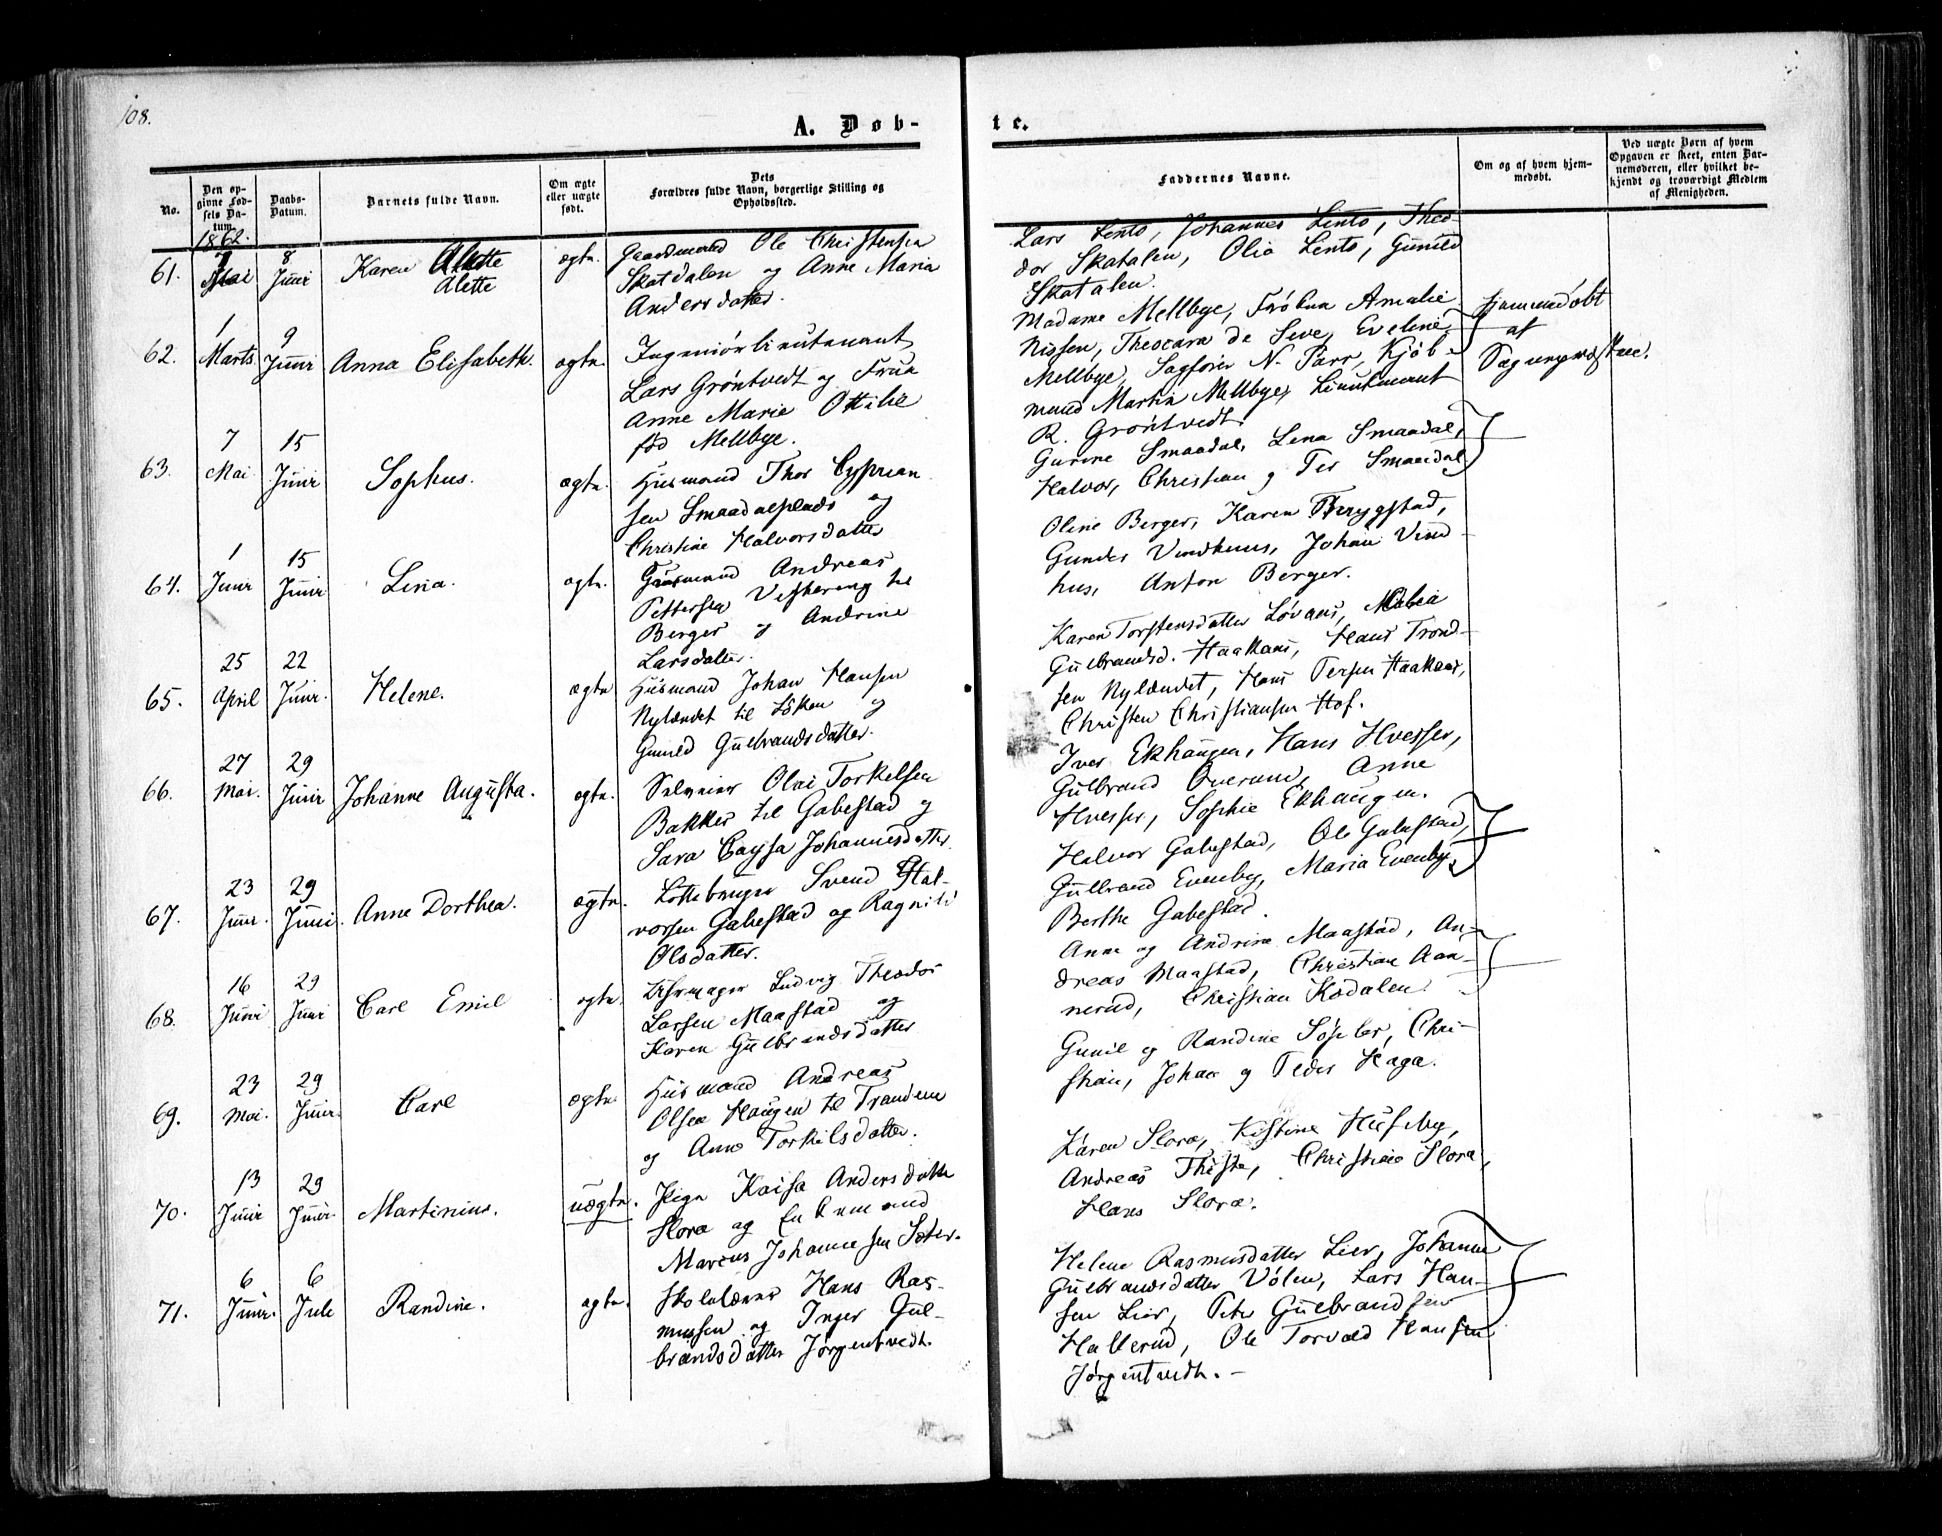 108.
A. Døb-
te.
No.
Den op-
givne Fød-
sels Da-
tum.
Daabs-
Datum.
Barnets fulde Navn.
Om ægte
eller uægte
født.
Dets
Forældres fulde Navn, borgerlige Stilling og
Opholdssted.
Faddernes Navne.
Om og af hvem hjem-
medøbt.
Ved uægte Børn af hvem
Opgaven er skeet, enten Bar-
nemoderen, eller hvilket be-
kjendt og troværdigt Medlem
af Menigheden.
1862.
61.
7
Mai
8
Juni
Karen Alette
Alette
ægte.
Gaardmand Ole Christensen
Skatdalen og Anne Maria
Andersdatter.
Lars Lento, Johannes Lento, Theo-
dor Skatalen, Olia Lento, Gunild
Skatalen.
62.
1
Marts
9
Juni
Anna Elisabeth.
ægte.
Ingeniörlieutenant
Lars Gröntvedt og Frue
Anne Marie Ottilie
fød Mellbye.
Madame Mellbye, Fröken Amalie
Nissen, Theocara de Seve, Eveline
Mellbye, Sagförer N. Parr, Kjöb-
mand Martin Mellbye, Lieutenant
R. Gröntvedt.
Hjemmedöbt
af
Sognepræsten.
63.
7
Mai
15
Juni
Sophus.
ægte.
Husmand Thor Cyprian
sen Smaadalsplads og
Christine Halvorsdatter
Gurine Smaadal, Lena Smaadal,
Halvor, Christian og Ter Smaadal
64.
1
Juni
15
Juni
Lina.
ægte.
Husmand Andreas
Pettersen Vestereng til
Berger og Andrine
Larsdatter.
Oline Berger, Karen Trygstad,
Gunder Vindhuus, Johan Vind-
hus, Anton Berger.
65.
25
April
22
Juni.
Helene.
ægte
Husmand Johan Hansen
Nylændet til Löken og
Gunild Gulbrandsdatter.
Karen Torstensdatter Lövaas, Maria
Gulbrandsd. Haakaas, Hans Trond-
sen Nylændet, Hans Persen Haakaas,
Christen Christiansen Hof.
66.
27
Mai.
29
Juni
Johanne Augusta.
ægte.
Selveier Olai Torkelsen
Bakker til Gabestad og
Sara Caysa Johannesdatter
Iver Ekhaugen, Hans Hvesser,
Gulbrand Överund, Anne
Hvesser, Sophie Ekhaugen.
67.
23
Juni.
29
Juni.
Anne Dorthea.
ægte.
Svend Hal-
vorsen Gabestad og Ragnild
Olsdatter.
Halvor Gabestad, Ole Gabestad,
Gulbrand Evenby, Maria Evenby,
Berthe Gabestad.
68.
16
Juni
29
Juni
Carl Emil
ægte.
Uhrmager Ludvig Theodor
Larsen Maastad og
Karen Gulbrandsdatter
Anne og Andrine Maastad, An-
dreas Maastad, Christian Aan-
nerud, Christian Kodalen.
69.
23
Mai.
29
Juni.
Carl
ægte.
Husmand Andreas
Olsen Haugen til Trandem
og Anne Torkilsdatter.
Gunil og Randine Söfler, Chri-
stian, Johan og Peder Haga.
70.
13
Juni
29
Juni.
Martinius.
uægte.
Pige Kaisa Andersdatter
Slora og Enkemand
Marcus Johannesen Sæter.
Karen Slora, Kistine Huseby,
Andreas Thiste, Christian Slora,
Hans Slora.
71.
6
Juni.
6
Juli
Randine.
ægte.
Skolelærer Hans Ras-
mussen og Inger Gul-
brandsdatter Jörgentvedt.
Helene Rasmusdatter Lier, Johanne
Gulbrandsdatter Völen, Lars Han-
sen Lier, Peter Gulbrandsen
Hallerud, Ole Torvald Hansen
Jörgentvedt. –